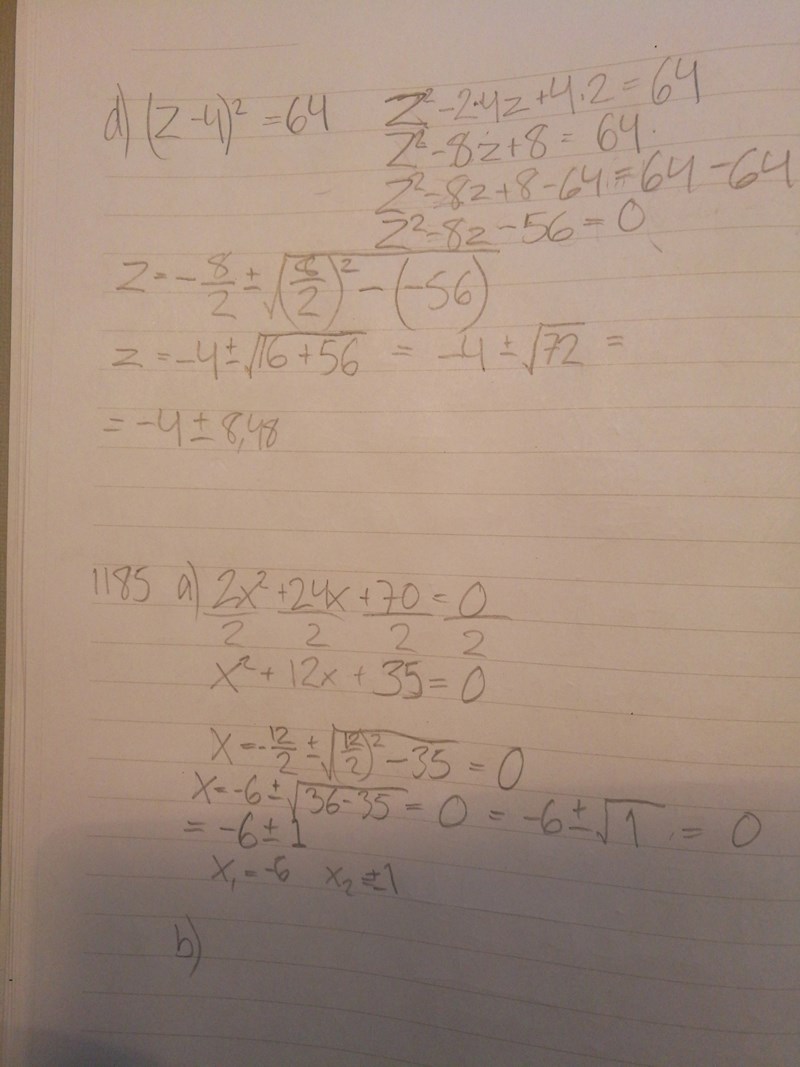 d) (z-4)² = 64
z² - 2·4z + 4·2 = 64
z² - 8z + 8 = 64
z² - 8z + 8 - 64 = 64 - 64
z² - 8z - 56 = 0
z = -8/2 ± √((8/2)² - (-56))
z = -4 ± √(16 + 56) = -4 ± √72 =
= -4 ± 8,48
1185 a) 2x²/2 + 24x/2 + 70/2 = 0/2
x² + 12x + 35 = 0
x = -12/2 ± √((12/2)² - 35) = 0
x = -6 ± √(36 - 35) = 0 = -6 ± √1 = 0
= -6 ± 1
x₁ = -6 x₂ = ±1
b)